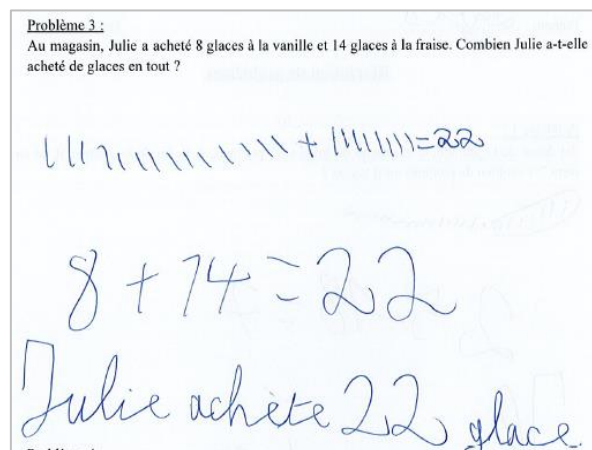 Problème 3 :
Au magasin, Julie a acheté 8 glaces à la vanille et 14 glaces à la fraise. Combien Julie a-t-elle
acheté de glaces en tout ?
\\\\\\\\\\\\\\ + |||||||| = 22
8 + 14 = 22
Julie achète 22 glace.